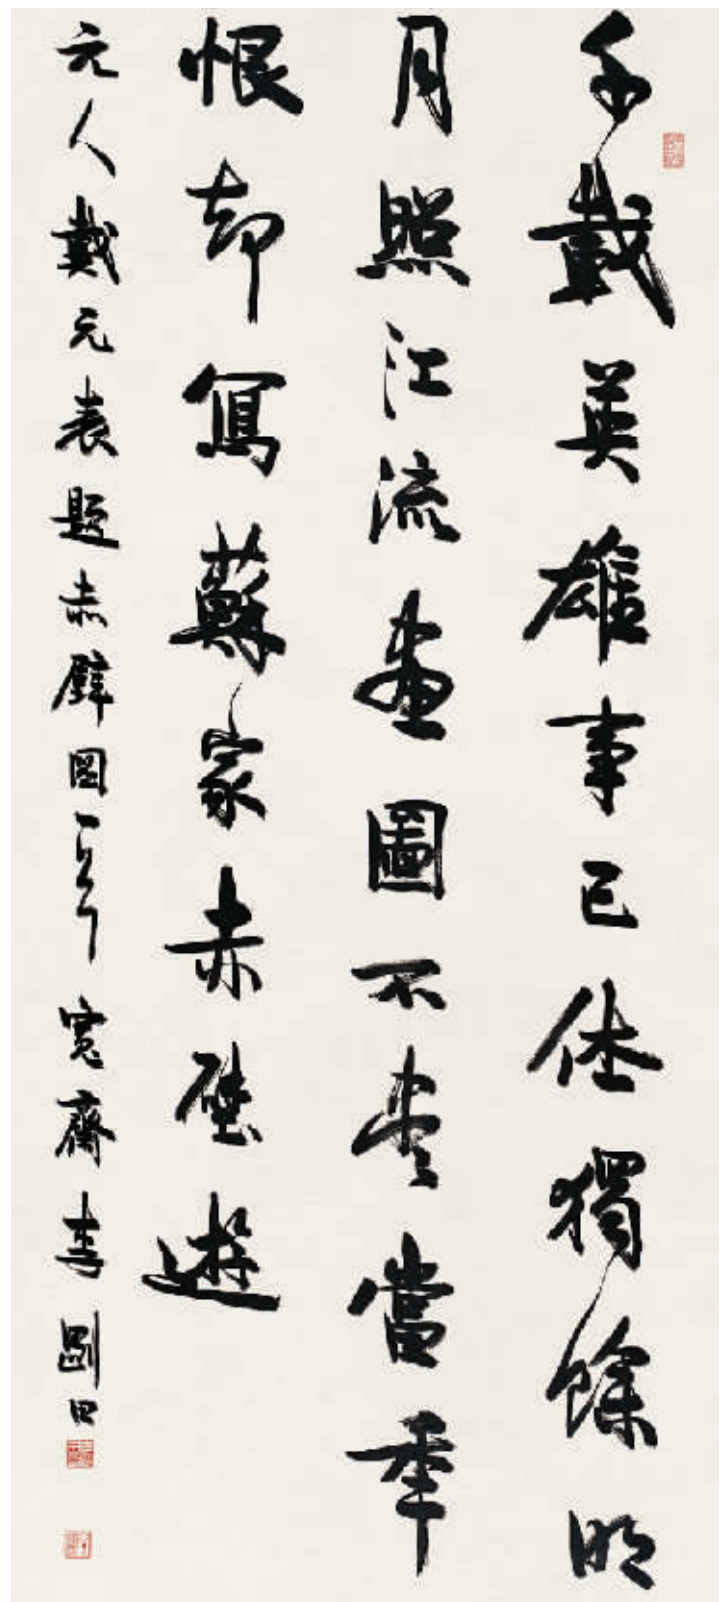 千載英雄事已休獨餘明
月照江流畫圖不盡當年
恨却寫蘇家赤壁遊
元人戴元表題赤壁圖一首寬齋李剛田